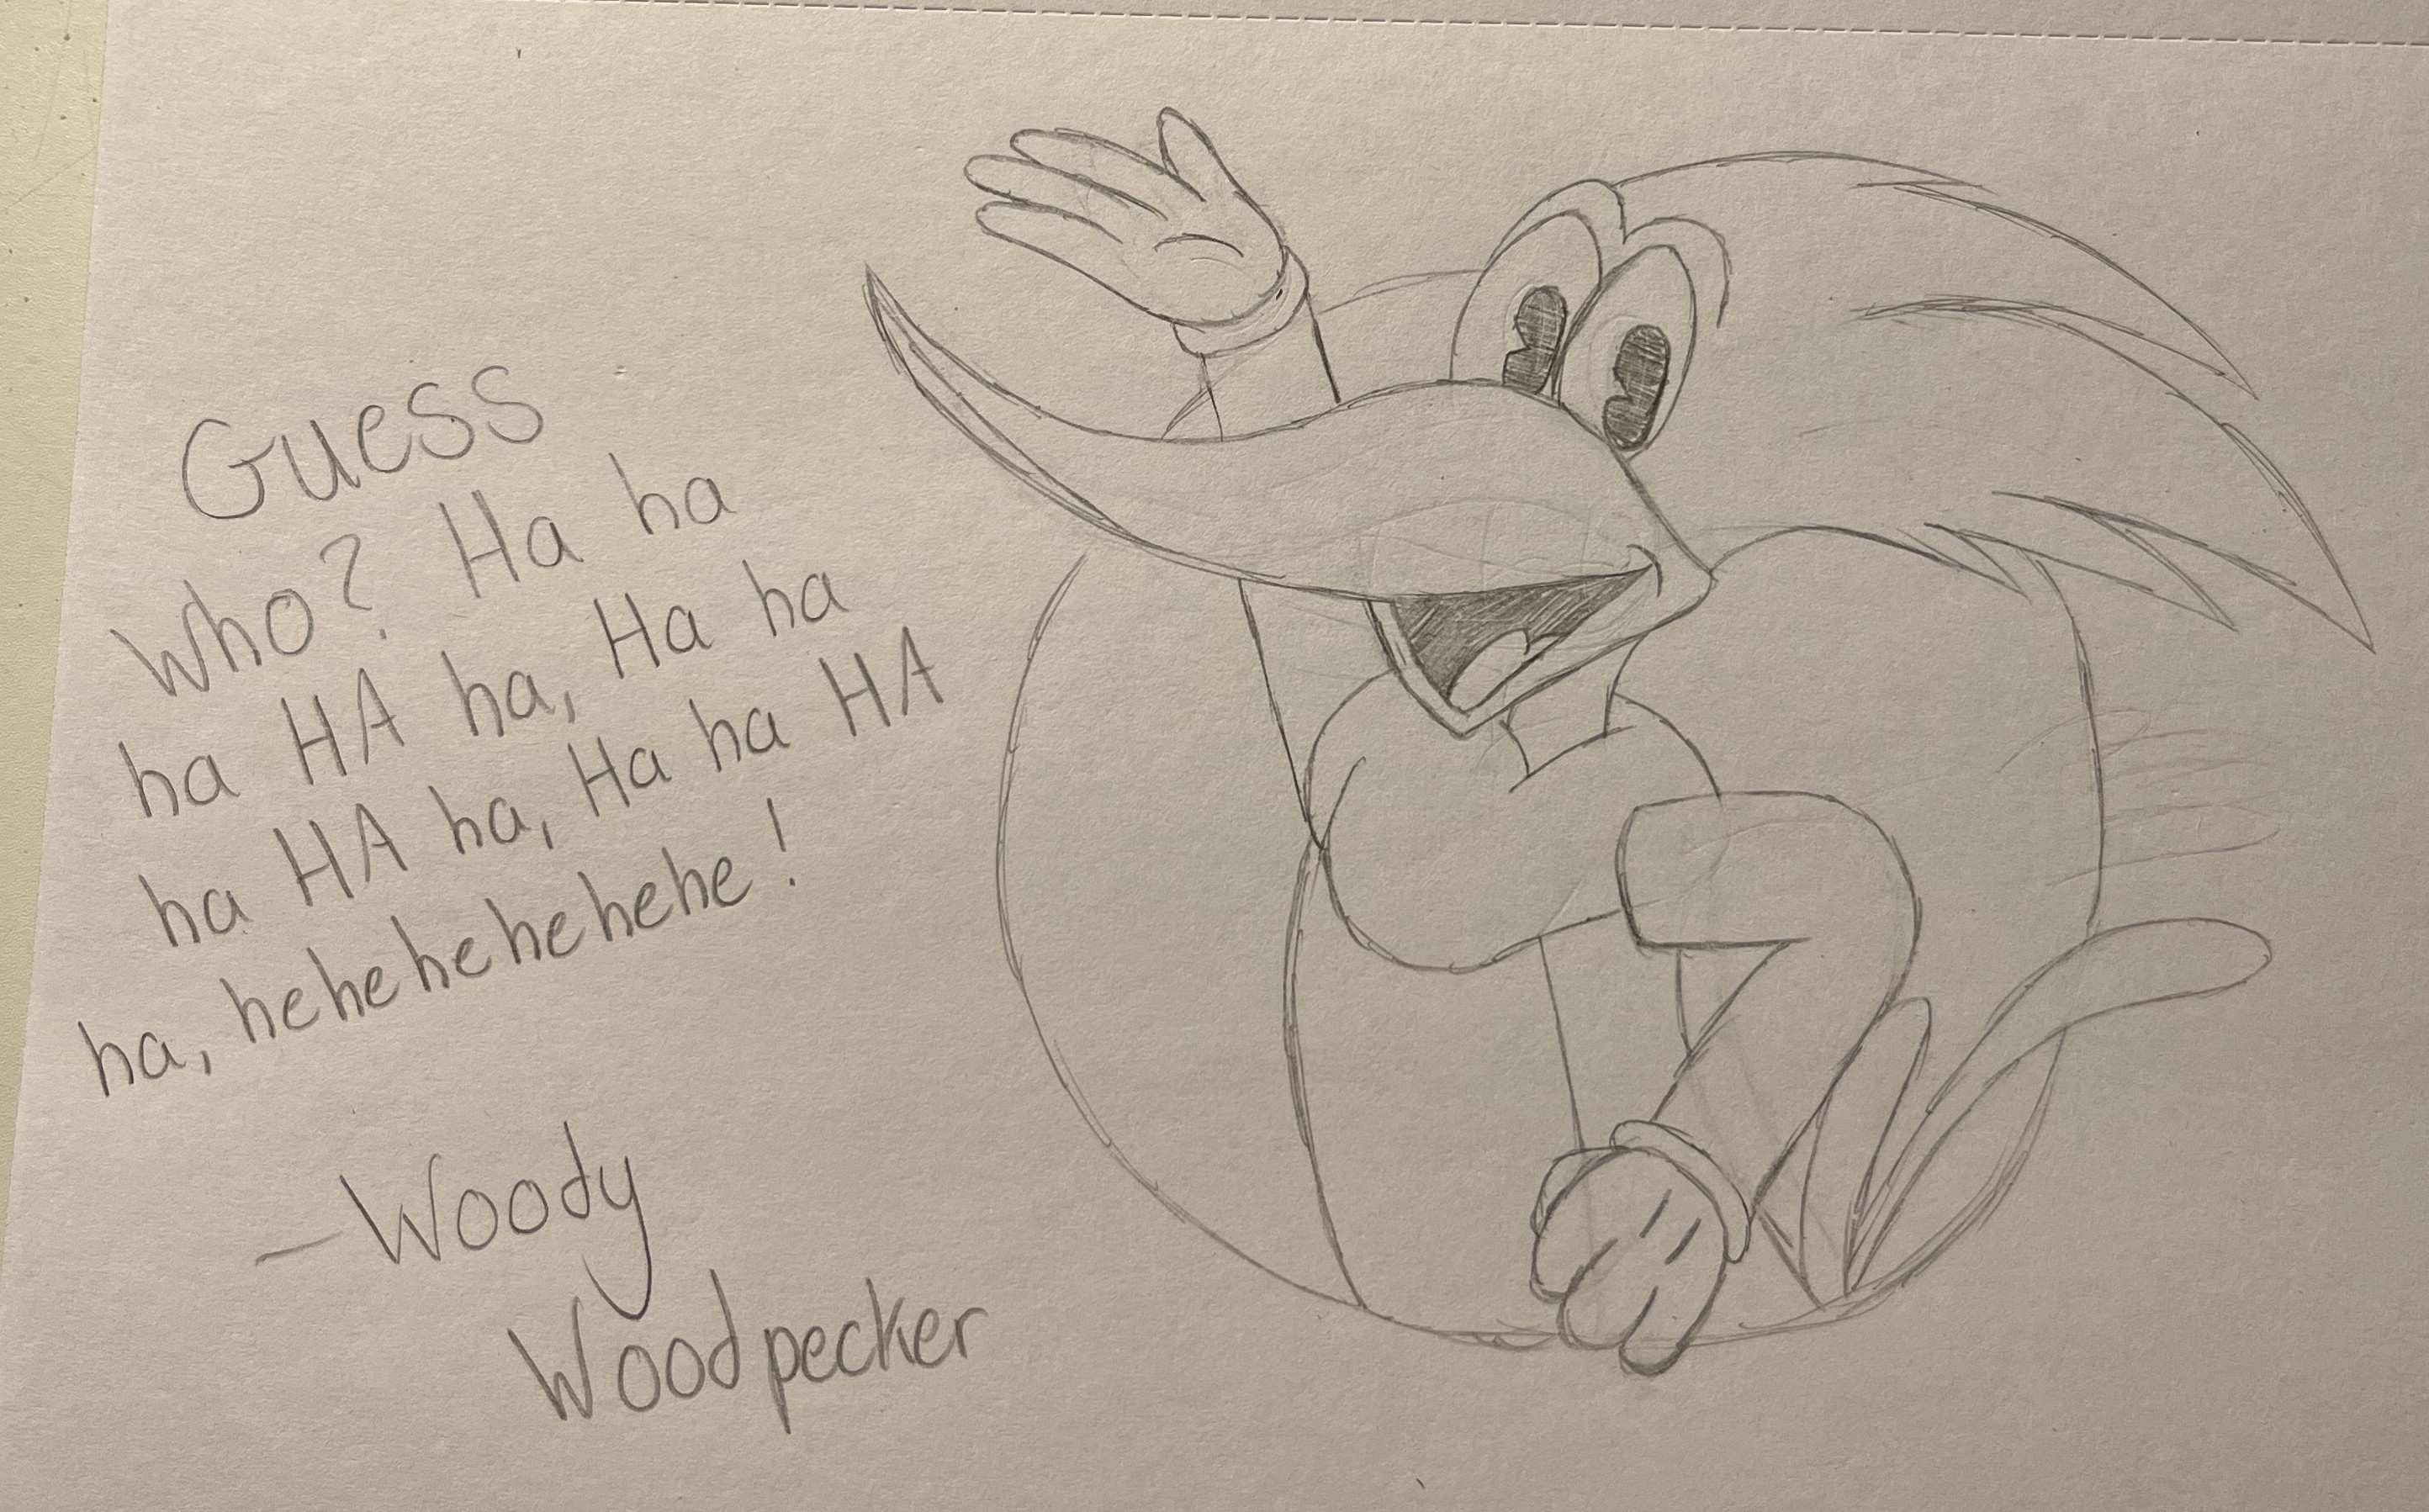 Guess
Who? Ha ha
ha HA ha, Ha ha
ha HA ha, Ha ha HA
ha, hehehehehehe!
— Woody
Woodpecker